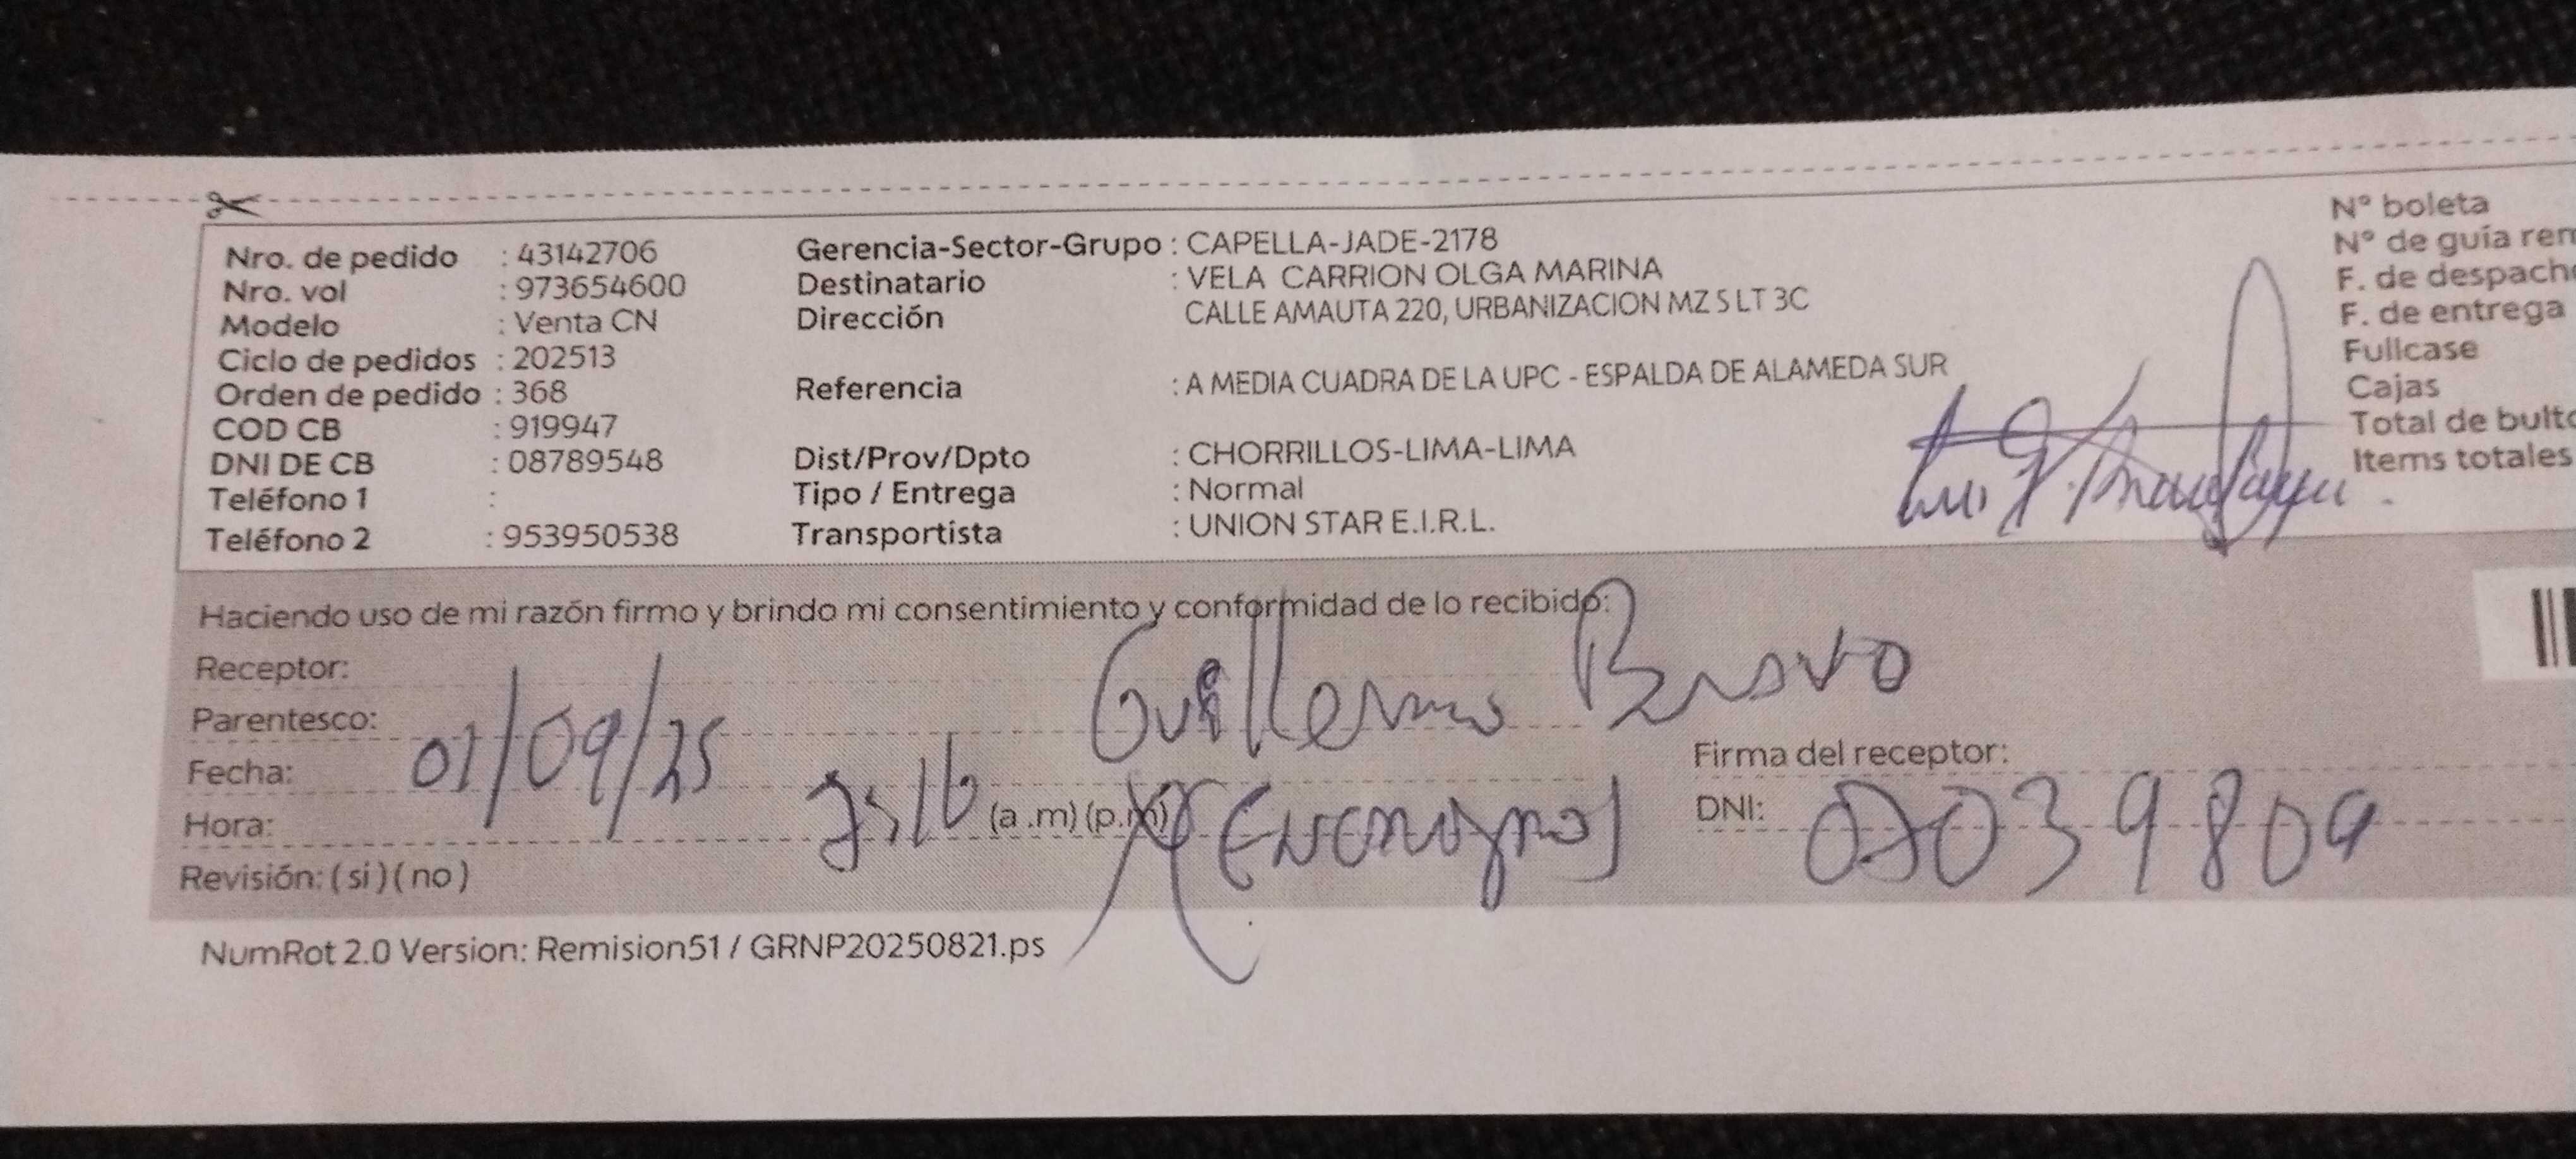 Nro. de pedido : 43142706
Nro. vol : 973654600
Modelo : Venta CN
Ciclo de pedidos : 202513
Orden de pedido : 368
COD CB : 919947
DNI DE CB : 08789548
Teléfono 1 :
Teléfono 2 : 953950538
Gerencia-Sector-Grupo : CAPELLA-JADE-2178
Destinatario : VELA CARRION OLGA MARINA
Dirección CALLE AMAUTA 220, URBANIZACION MZ S LT 3C
Referencia : A MEDIA CUADRA DE LA UPC - ESPALDA DE ALAMEDA SUR
Dist/Prov/Dpto : CHORRILLOS-LIMA-LIMA
Tipo / Entrega : Normal
Transportista : UNION STAR E.I.R.L.
N° boleta
N° de guía
F. de
F. de entrega
Fullcase
Cajas
Total de
Items totales
Haciendo uso de mi razón firmo y brindo mi consentimiento y conformidad de lo recibido:
Receptor: Guillermo Bravo
Parentesco:
Fecha: 01/09/25
Hora: (a .m) (p.m)
Firma del receptor:
DNI:
Revisión: ( si ) ( no )
NumRot 2.0 Version: Remision51 / GRNP20250821.ps